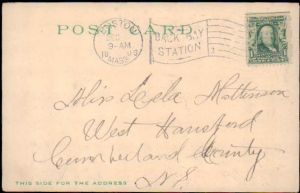 POST CARD.
BOSTON
DEC
9-AM
MASS.
BACK BAY
STATION
Miss Lela Mattinson
West Hansford
Cumberland County
N S
THIS SIDE FOR THE ADDRESS